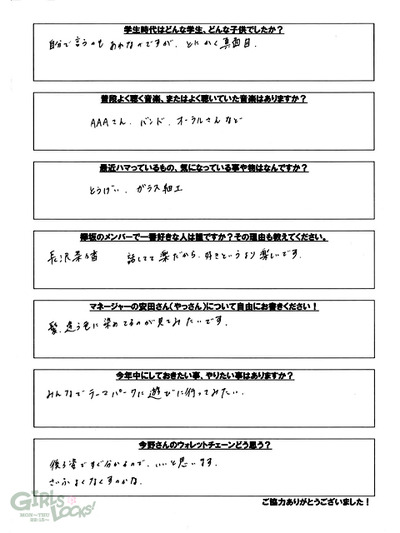 学生時代はどんな学生、どんな子供でしたか？
自分で言うのもあれなのですが、とにかく真面目。
普段よく聴く音楽、またはよく聴いていた音楽はありますか？
AAAさん、バンド、オーラルさんなど
最近ハマっているもの、気になっている事や物はなんですか？
とうげい、ガラス細工
欅坂のメンバーで一番好きな人は誰ですか？その理由も教えてください。
長沢菜々香　話してて楽だから、好きというより楽しいです。
マネージャーの安田さん（やっさん）について自由にお書きください！
髪、違う色に染めてるのが見てみたいです。
今年中にしておきたい事、やりたい事はありますか？
みんなでテーマパークに遊びに行ってみたい。
今野さんのウォレットチェーンどう思う？
後ろ姿ですぐ分かるので、いいと思います。
さいふよくなくすのかな。
ご協力ありがとうございました！
GIRLS
LOCKS!
MON-THU